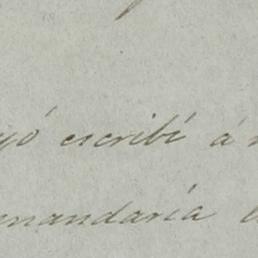 yó escribí á
mandaría